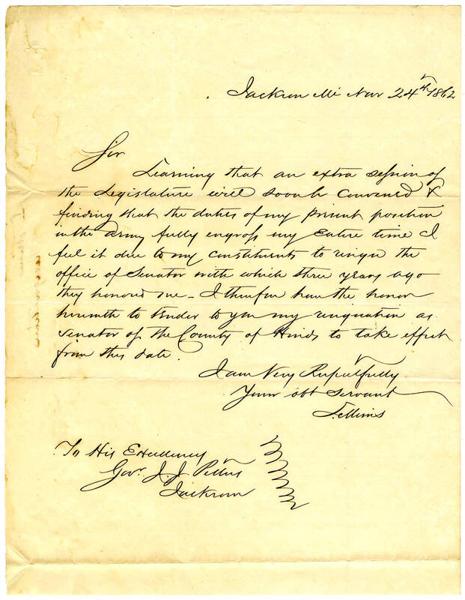 Jackson Mi Nov 24th 1862
Sir
Learning that an extra session of
the Legislature will soon be convened &
finding that the duties of my present position
in the army fully engross my Entire time I
feel it due to my constituents to resign the
office of Senator with which three years ago
they honored me - I therefore have the honor
herewith to tender to you my resignation as
Senator of the County of Hinds to take effect
from this date.
I am Very Respectfully
Your obt Servant
To His Excellency
Gov. J. J. Pettus
Jackson